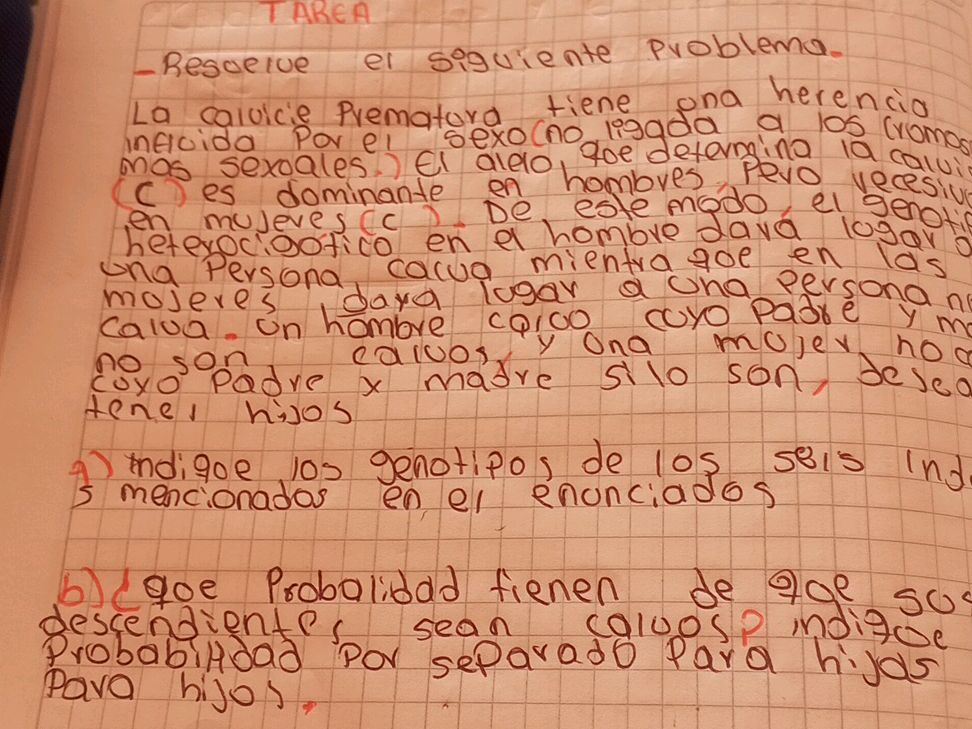 TAREA
- Resuelve el seguiente problema.
La calvicie Prematura tiene una herencia
influida Por el sexo (no ligada a los cromos
mas sexuales.) El alelo, que determina la calvi
(C) es dominante en hombres, pero recesivo
en mujeres (c). De este modo, el genoti
heterocigótico en el hombre dará lugar a
una Persona calva mientra que en las
mujeres, dara lugar a una persona n
calva. Un hombre calvo cuyo padre y m
no son calvos, y una mujer no c
cuyo Padre x madre silo son, desea
tener hijos
a) indique los genotipos de los seis ind
s mencionados en el enunciados
b) ¿que Probalidad tienen de que sus
descendientes sean calvos? indique
Probabilidad por separado para hijas
Para hijos.